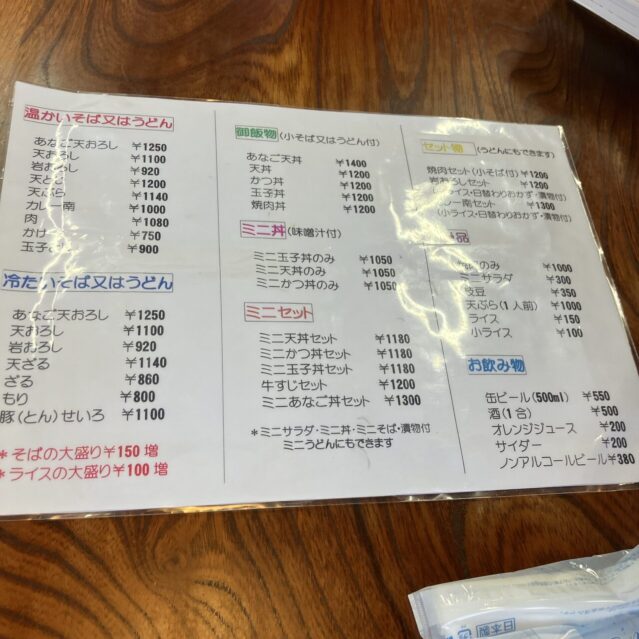 温かいそば又はうどん
あなご天おろし ¥1250
天おろし ¥1100
岩おろし ¥920
天とじ ¥1200
天ぷら ¥1140
カレー南 ¥1000
肉 ¥1080
かけ ¥750
玉子とじ ¥900
冷たいそば又はうどん
あなご天おろし ¥1250
天おろし ¥1100
岩おろし ¥920
天ざる ¥1140
ざる ¥860
もり ¥800
豚(とん)せいろ ¥1100
*そばの大盛り¥150増
*ライスの大盛り¥100増
御飯物 (小そば又はうどん付)
あなご天丼 ¥1400
天丼 ¥1200
かつ丼 ¥1200
玉子丼 ¥1200
焼肉丼 ¥1200
ミニ丼 (味噌汁付)
ミニ玉子丼のみ ¥1050
ミニ天丼のみ ¥1050
ミニかつ丼のみ ¥1050
ミニセット
ミニ天丼セット ¥1180
ミニかつ丼セット ¥1180
ミニ玉子丼セット ¥1180
牛すじセット ¥1200
ミニあなご丼セット ¥1300
*ミニサラダ・ミニ丼・ミニそば・漬物付
ミニうどんにもできます
セット物 (うどんにもできます)
焼肉セット(小そば付) ¥1200
岩おろしセット ¥1200
(小ライス・日替わりおかず・漬物付)
カレー南セット ¥1300
(小ライス・日替わりおかず・漬物付)
品
のみ ¥1000
ミニサラダ ¥300
枝豆 ¥350
天ぷら(1人前) ¥1000
ライス ¥150
小ライス ¥100
お飲み物
缶ビール(500ml) ¥550
酒(1合) ¥500
オレンジジュース ¥200
サイダー ¥200
ノンアルコールビール ¥380
日本製